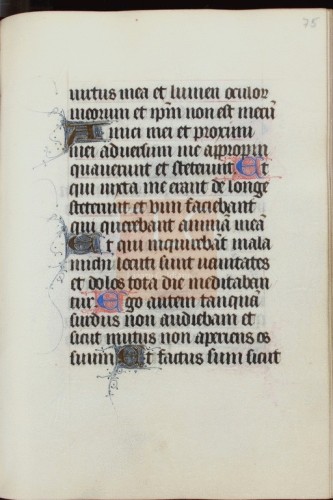 75
virtus mea et lumen oculor
meorum et ip̄m non est mecū
Amici mei et proximi
mei adversum me appropin
quaverunt et steterunt Et
qui iuxta me erant de longe
steterunt et vim faciebant
qui querebant animā meā
Et qui inquirebāt mala
michi locuti sunt vanitates
et dolos tota die meditaban
tur. Ego autem tanquā
surdus non audiebam et
sicut mutus non aperiens os
suum Et factus sum sicut